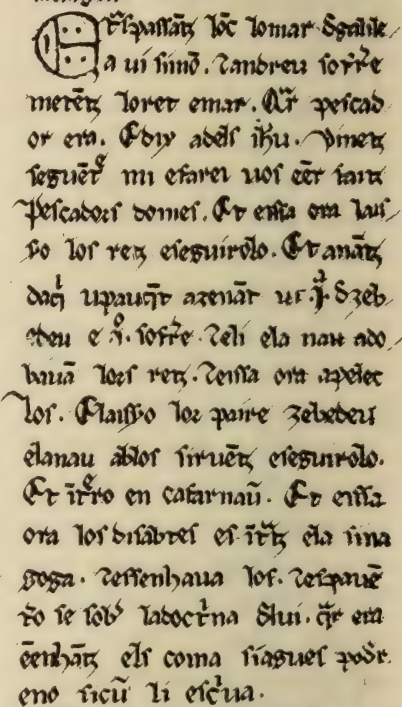 Et̃spassãtz lõc lomar dgalile
a ui simõ. ⁊andreu sofr̃e
metẽtz loret emar. Q̃r pescad
or era. E dix adels ih̃u. vinetz
seguẽt mi efarei uos eẽr faitz
Pescadors domes. Et eissa ora lais
so los retz eseguirõlo. Et anãtz
daq̃ upauq̃t azenãt ui .i. d zeb
edeu e .i. sofr̃e. ⁊eli ela nau ado
bauã lors retz. ⁊eissa ora apelec
los. E laisso lor paire zebedeu
elanau ablos siruẽtz eseguirõlo.
Et ĩtro en cafarnaũ. Et eissa
ora los disabtes es ĩtr̃tz ela sina
goga. ⁊essenhaua los. ⁊espauẽ
to se sob̃ ladoct̃na dlui. q̃r era
eẽnhãtz els coma siagues podr̃.
eno sicũ li esc̃ua.